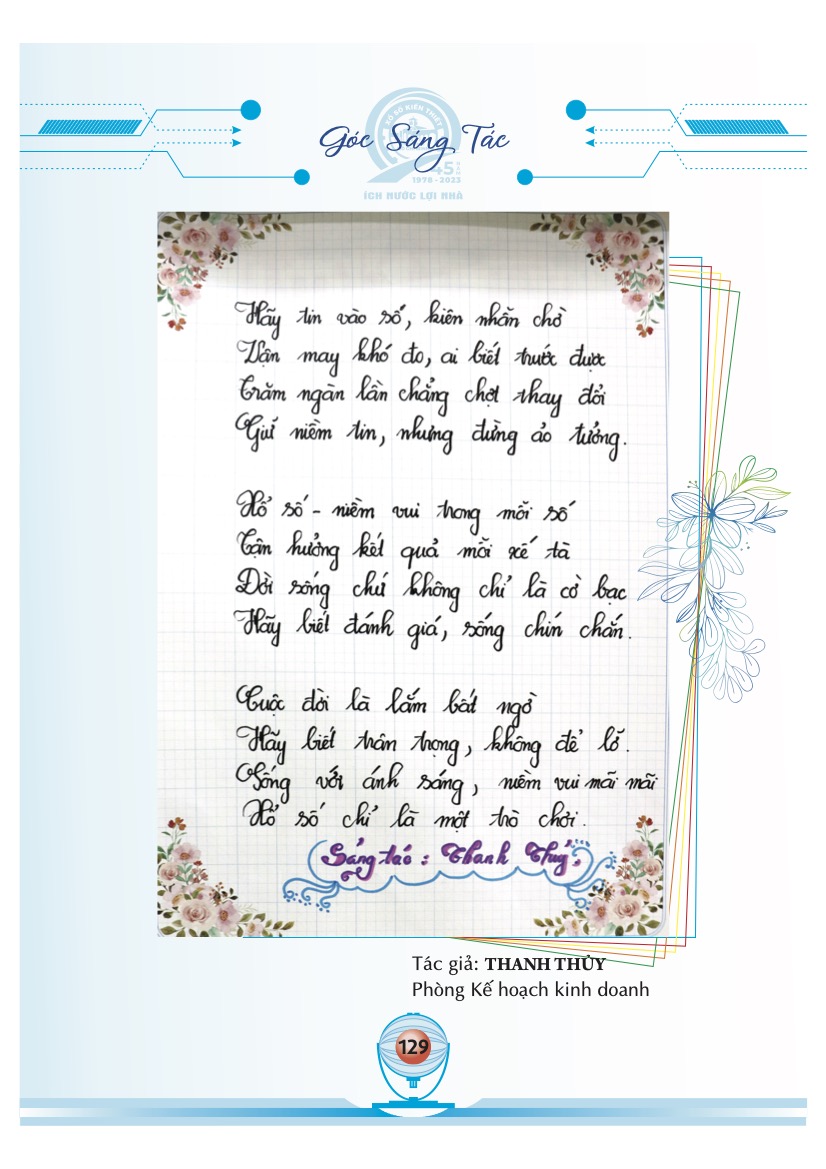 Góc Sáng Tác
XỔ SỐ KIẾN THIẾT
45 NĂM
1978 - 2023
ÍCH NƯỚC LỢI NHÀ
Hãy tin vào số, kiên nhẫn chờ
Vận may khó đo, ai biết trước được
Trăm ngàn lần chẳng chợt thay đổi
Giữ niềm tin, nhưng đừng ảo tưởng.
Xổ số - niềm vui trong mỗi số
Tận hưởng kết quả mỗi xế tà
Đời sống chứ không chỉ là cờ bạc
Hãy biết đánh giá, sống chín chắn.
Cuộc đời là lắm bất ngờ
Hãy biết trân trọng, không để lố.
Sống với ánh sáng, niềm vui mãi mãi
Xổ số chỉ là một trò chơi.
Sáng tác : Thanh Thuỷ.
Tác giả: THANH THỦY
Phòng Kế hoạch kinh doanh
129